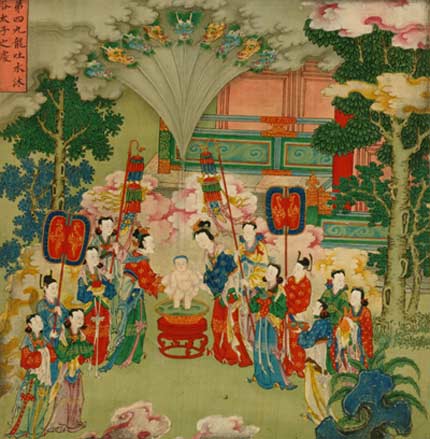 第四九龍吐水沐
浴太子之處